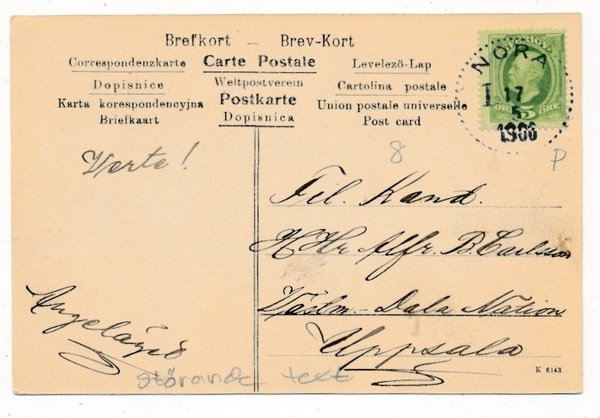 Brefkort — Brev-Kort
Correspondenzkarte Carte Postale Levelező-Lap
Dopisnice Weltpostverein Cartolina postale
Karta korespondencyjna Postkarte Union postale universelle
Briefkaart Dopisnica Post card
SVERIGE
5 ÖRE
NORA
17
5
1906
8
P
Verte!
Fil. Kand.
Hr Alfr. B. Carlsson
Västm-Dala Nation
Uppsala
störande text
K 6143